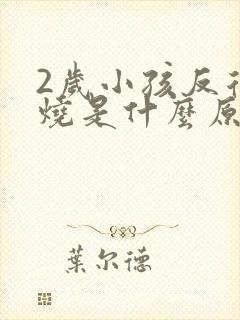 2歲小孩反
燒是什麼原
葉尔德